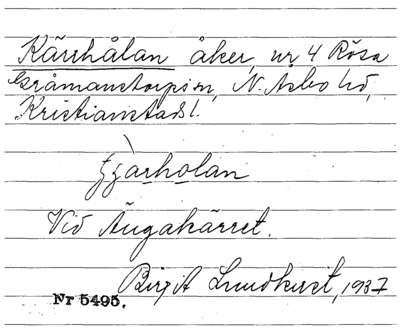 Kärrhålan åker, nr 4 Röva
Gråmanstorps sn, N. Åsbo hd,
Kristianstads l.
Vid Ängakärret.
Birgit Lundkvist, 1937
Nr 5495.